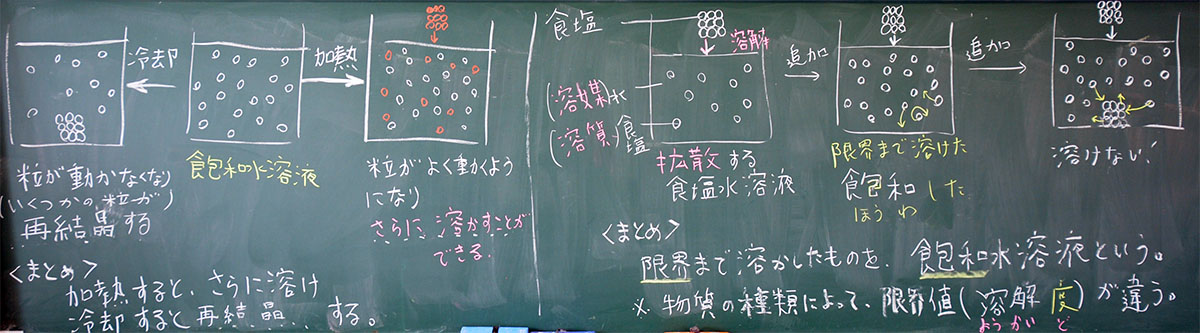 冷却
加熱
粒が動かなくなり
(いくつかの粒が)
再結晶する
飽和水溶液
粒がよく動くよう
になり
さらに溶かすことが
できる.
<まとめ>
加熱すると、さらに溶け
冷却すると再結晶する。
食塩
溶解
(溶媒)水
(溶質)食塩
拡散する
食塩水溶液
追加
限界まで溶けた
飽和した
ほうわ
追加
溶けない!
<まとめ>
限界まで溶かしたものを、飽和水溶液という。
※物質の種類によって、限界値(溶解度)が違う。
ようかい ど